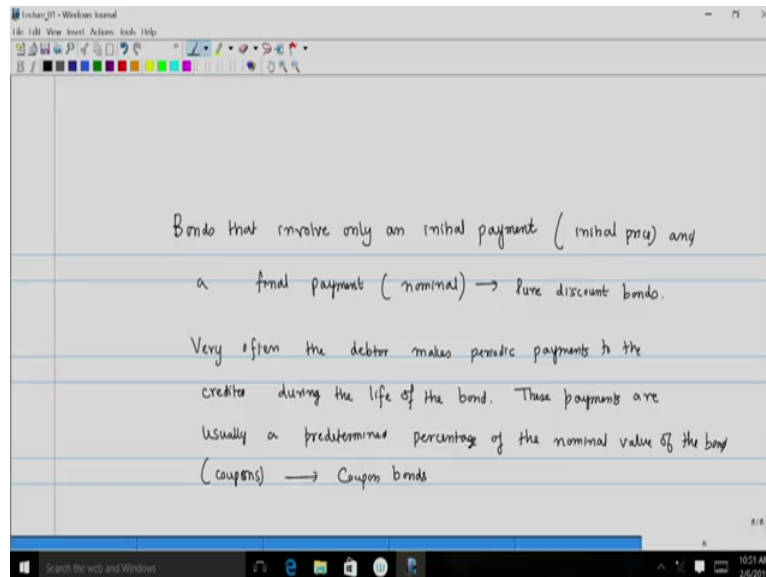 Lecture_01 - Windows Journal
File Edit View Insert Actions Tools Help
B I
Bonds that involve only an initial payment ( initial price) and
a final payment ( nominal) → Pure discount bonds.
Very often the debtor makes periodic payments to the
creditor during the life of the bond. These payments are
usually a predetermined percentage of the nominal value of the bond
(coupons) → Coupon bonds
8/8
Search the web and Windows
10:51 AM